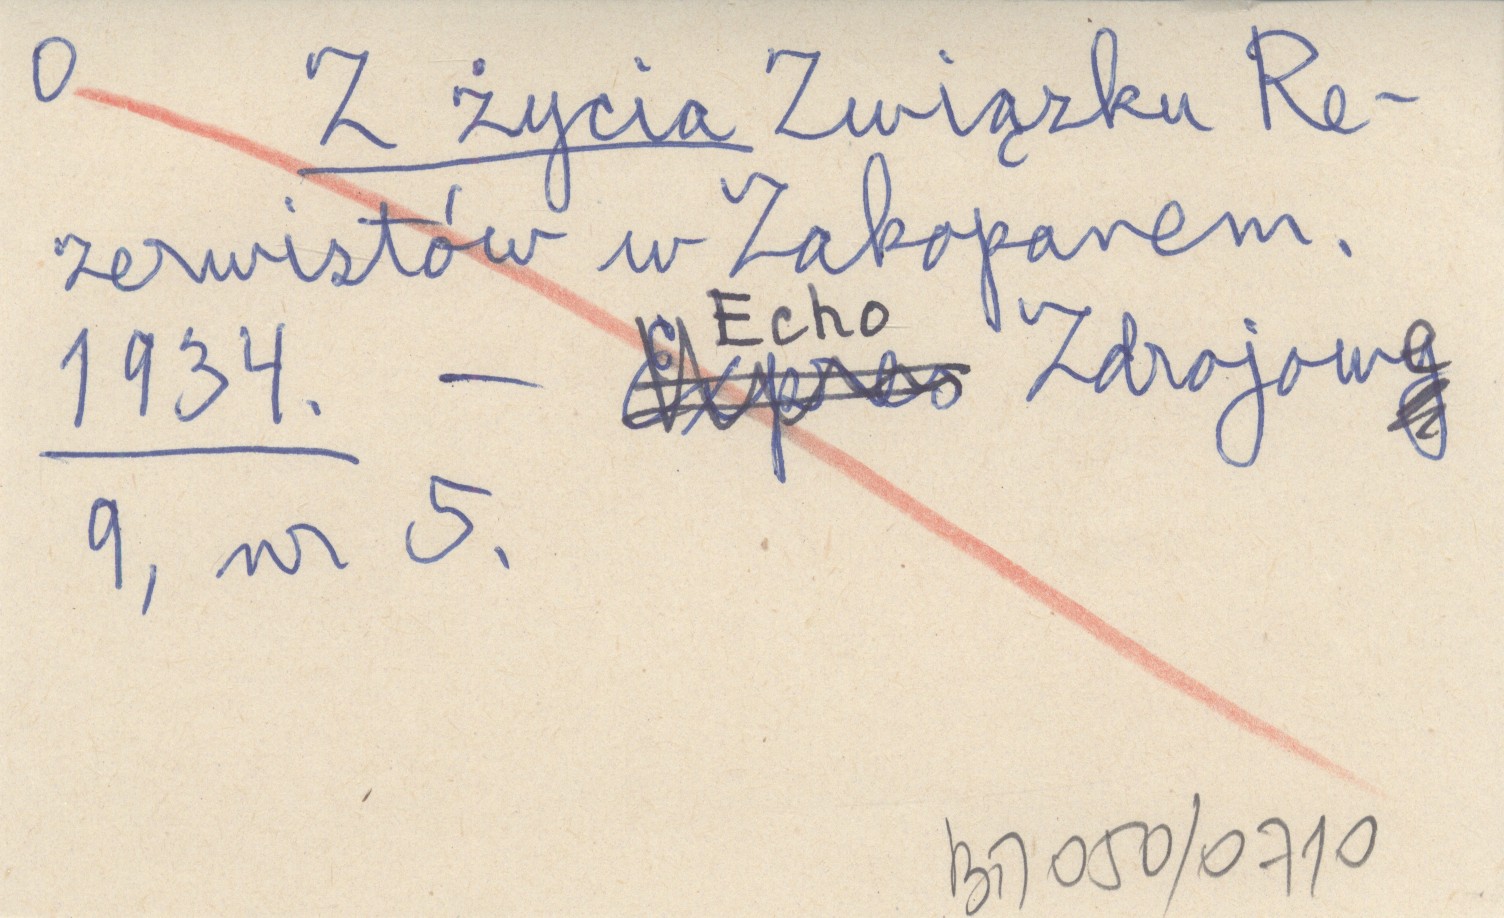 0 Z życia Związku Re-
zerwistów w Zakopanem.
1934. — Echo Zdrojowe
9, nr 5.
050/0710